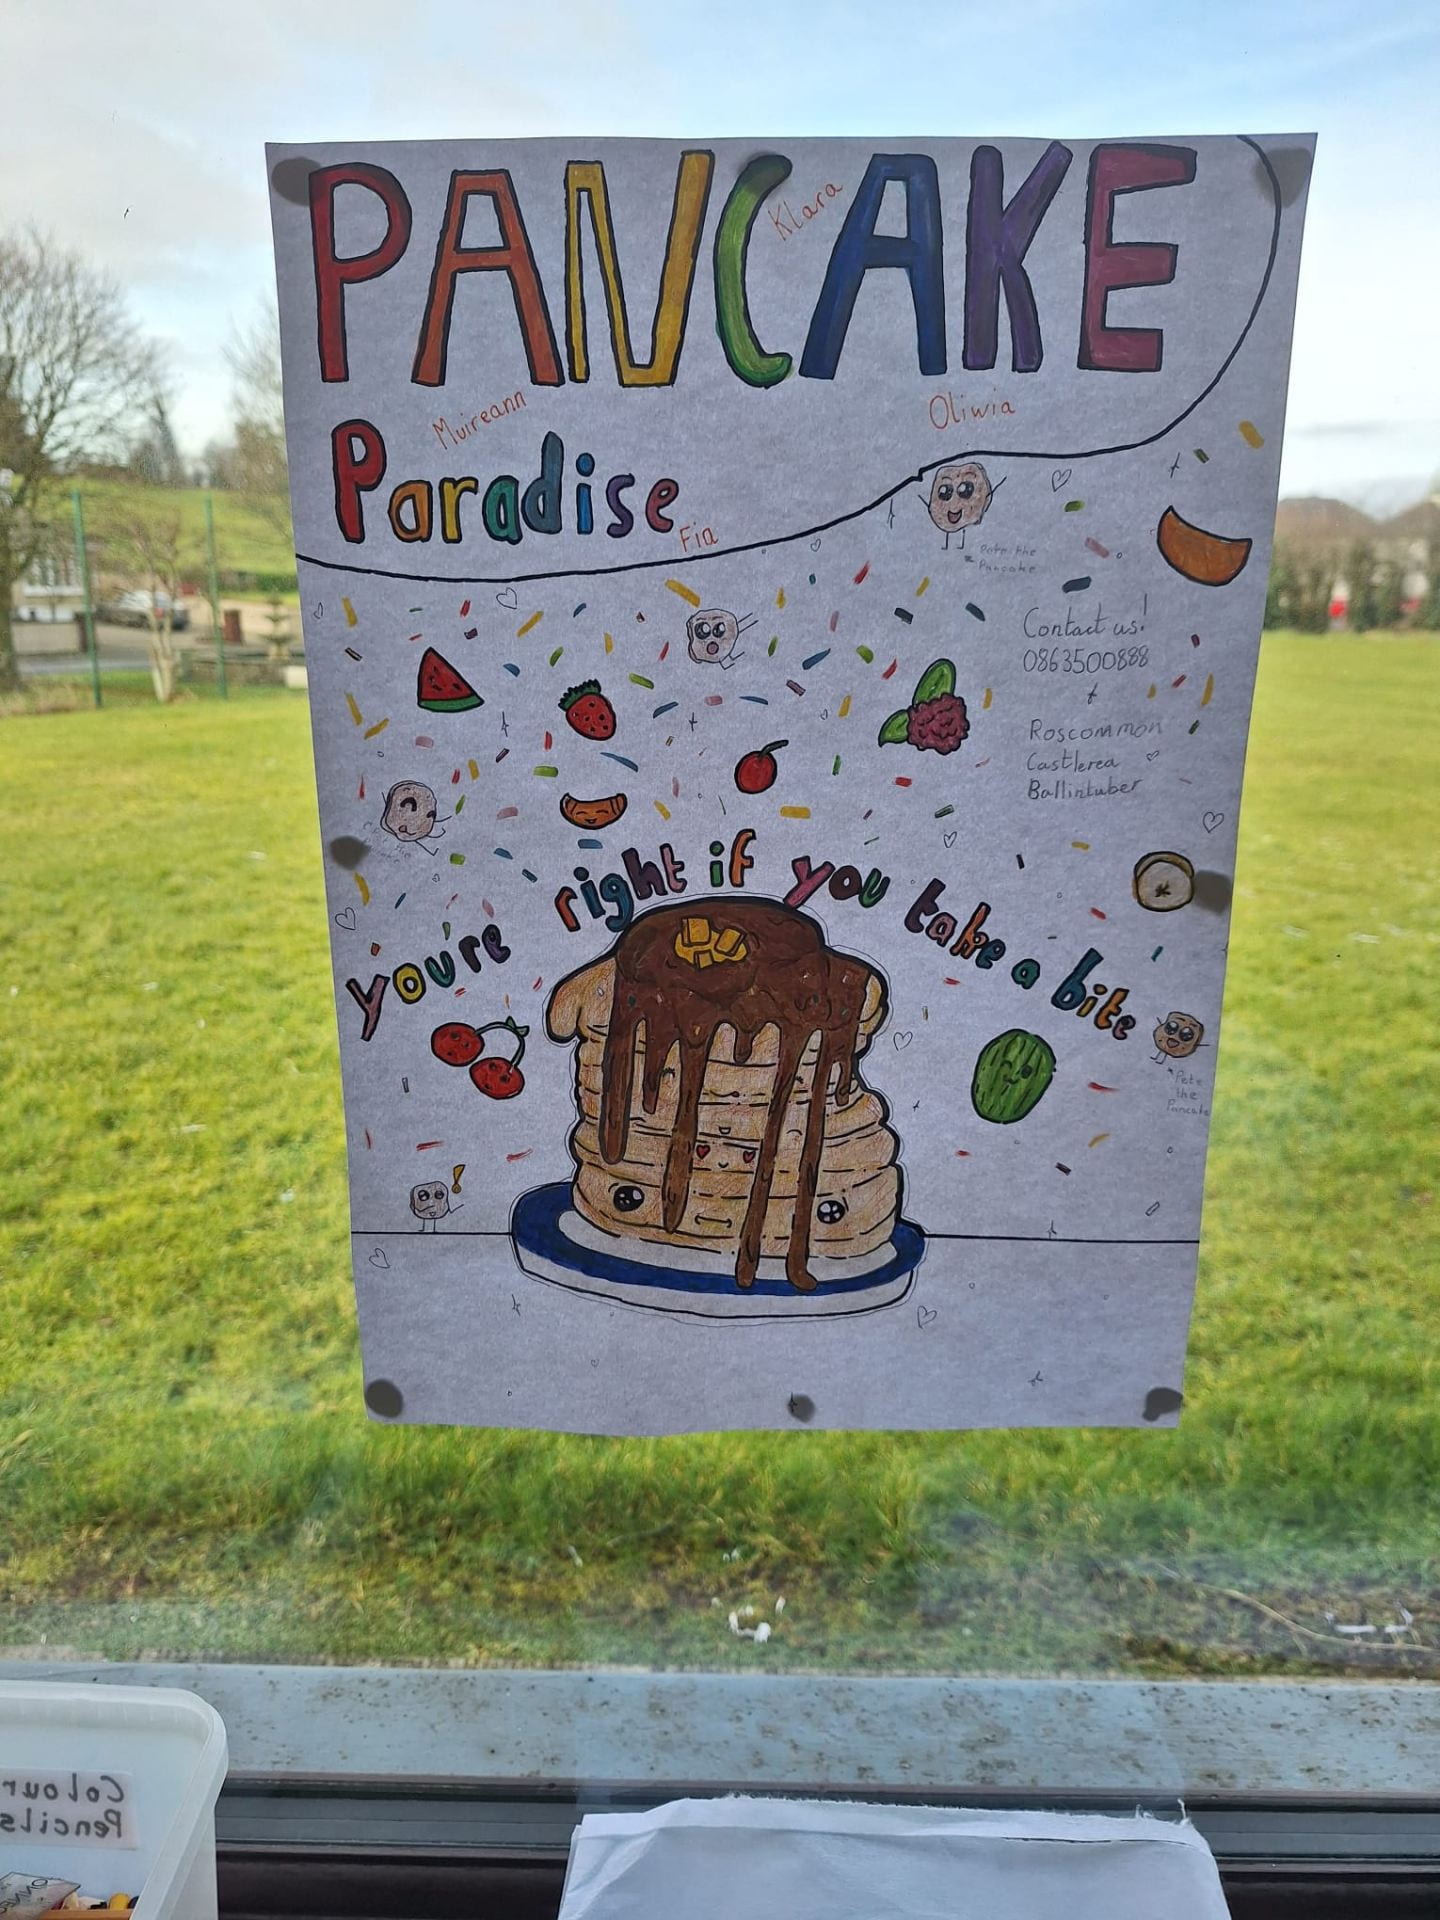 PANCAKE
Klara
Muireann
Oliwia
Paradise
Fia
Pete the
Pancake
Contact us!
0863500888
Roscommon
Castlerea
Ballintuber
you're right if you take a bite
Pete
the
Pancake
Colour
Pencils